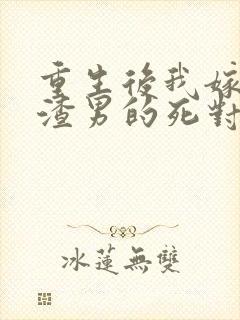 重生後我嫁
渣男的死對
冰蓮無雙